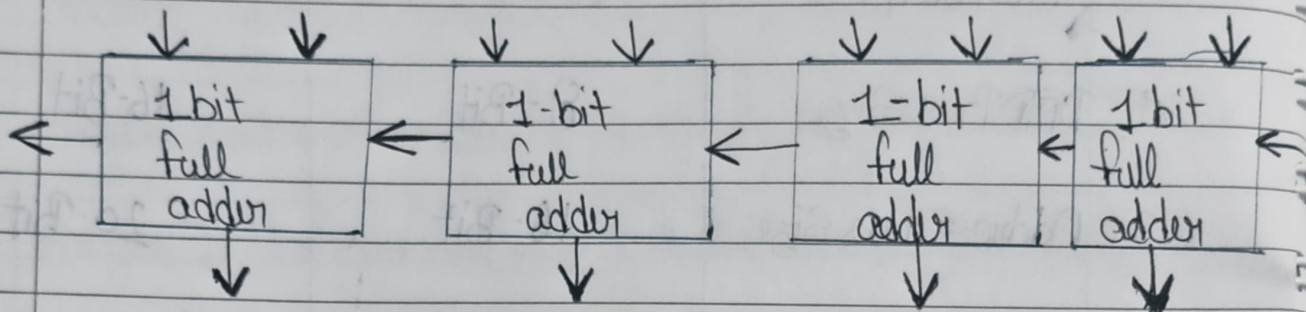 1 bit
full
adder
1-bit
full
adder
1-bit
full
adder
1 bit
full
adder